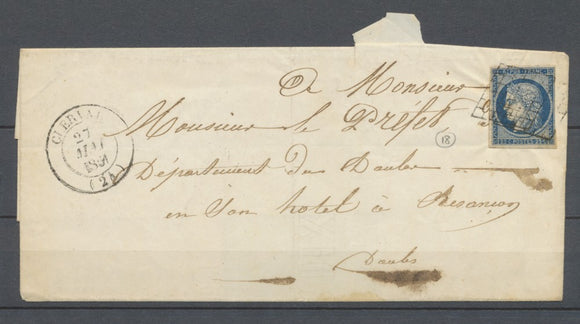 REPUB. FRANC.
A Monsieur
Monsieur le Préfet
18
Département du Doubs
en son hotel à Besançon
Doubs
CLERVAL
27
MAI
1851
(24)
25 C. POSTES 25 C.